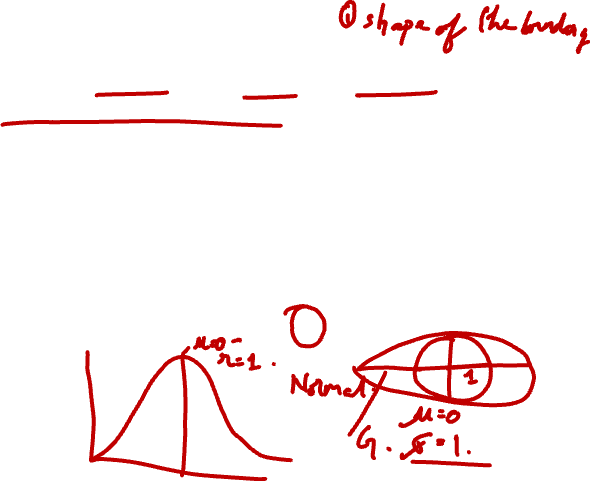 ① shape of the bounday
μ=0
σ=1.
Normal
1
G.
μ=0
σ=1.